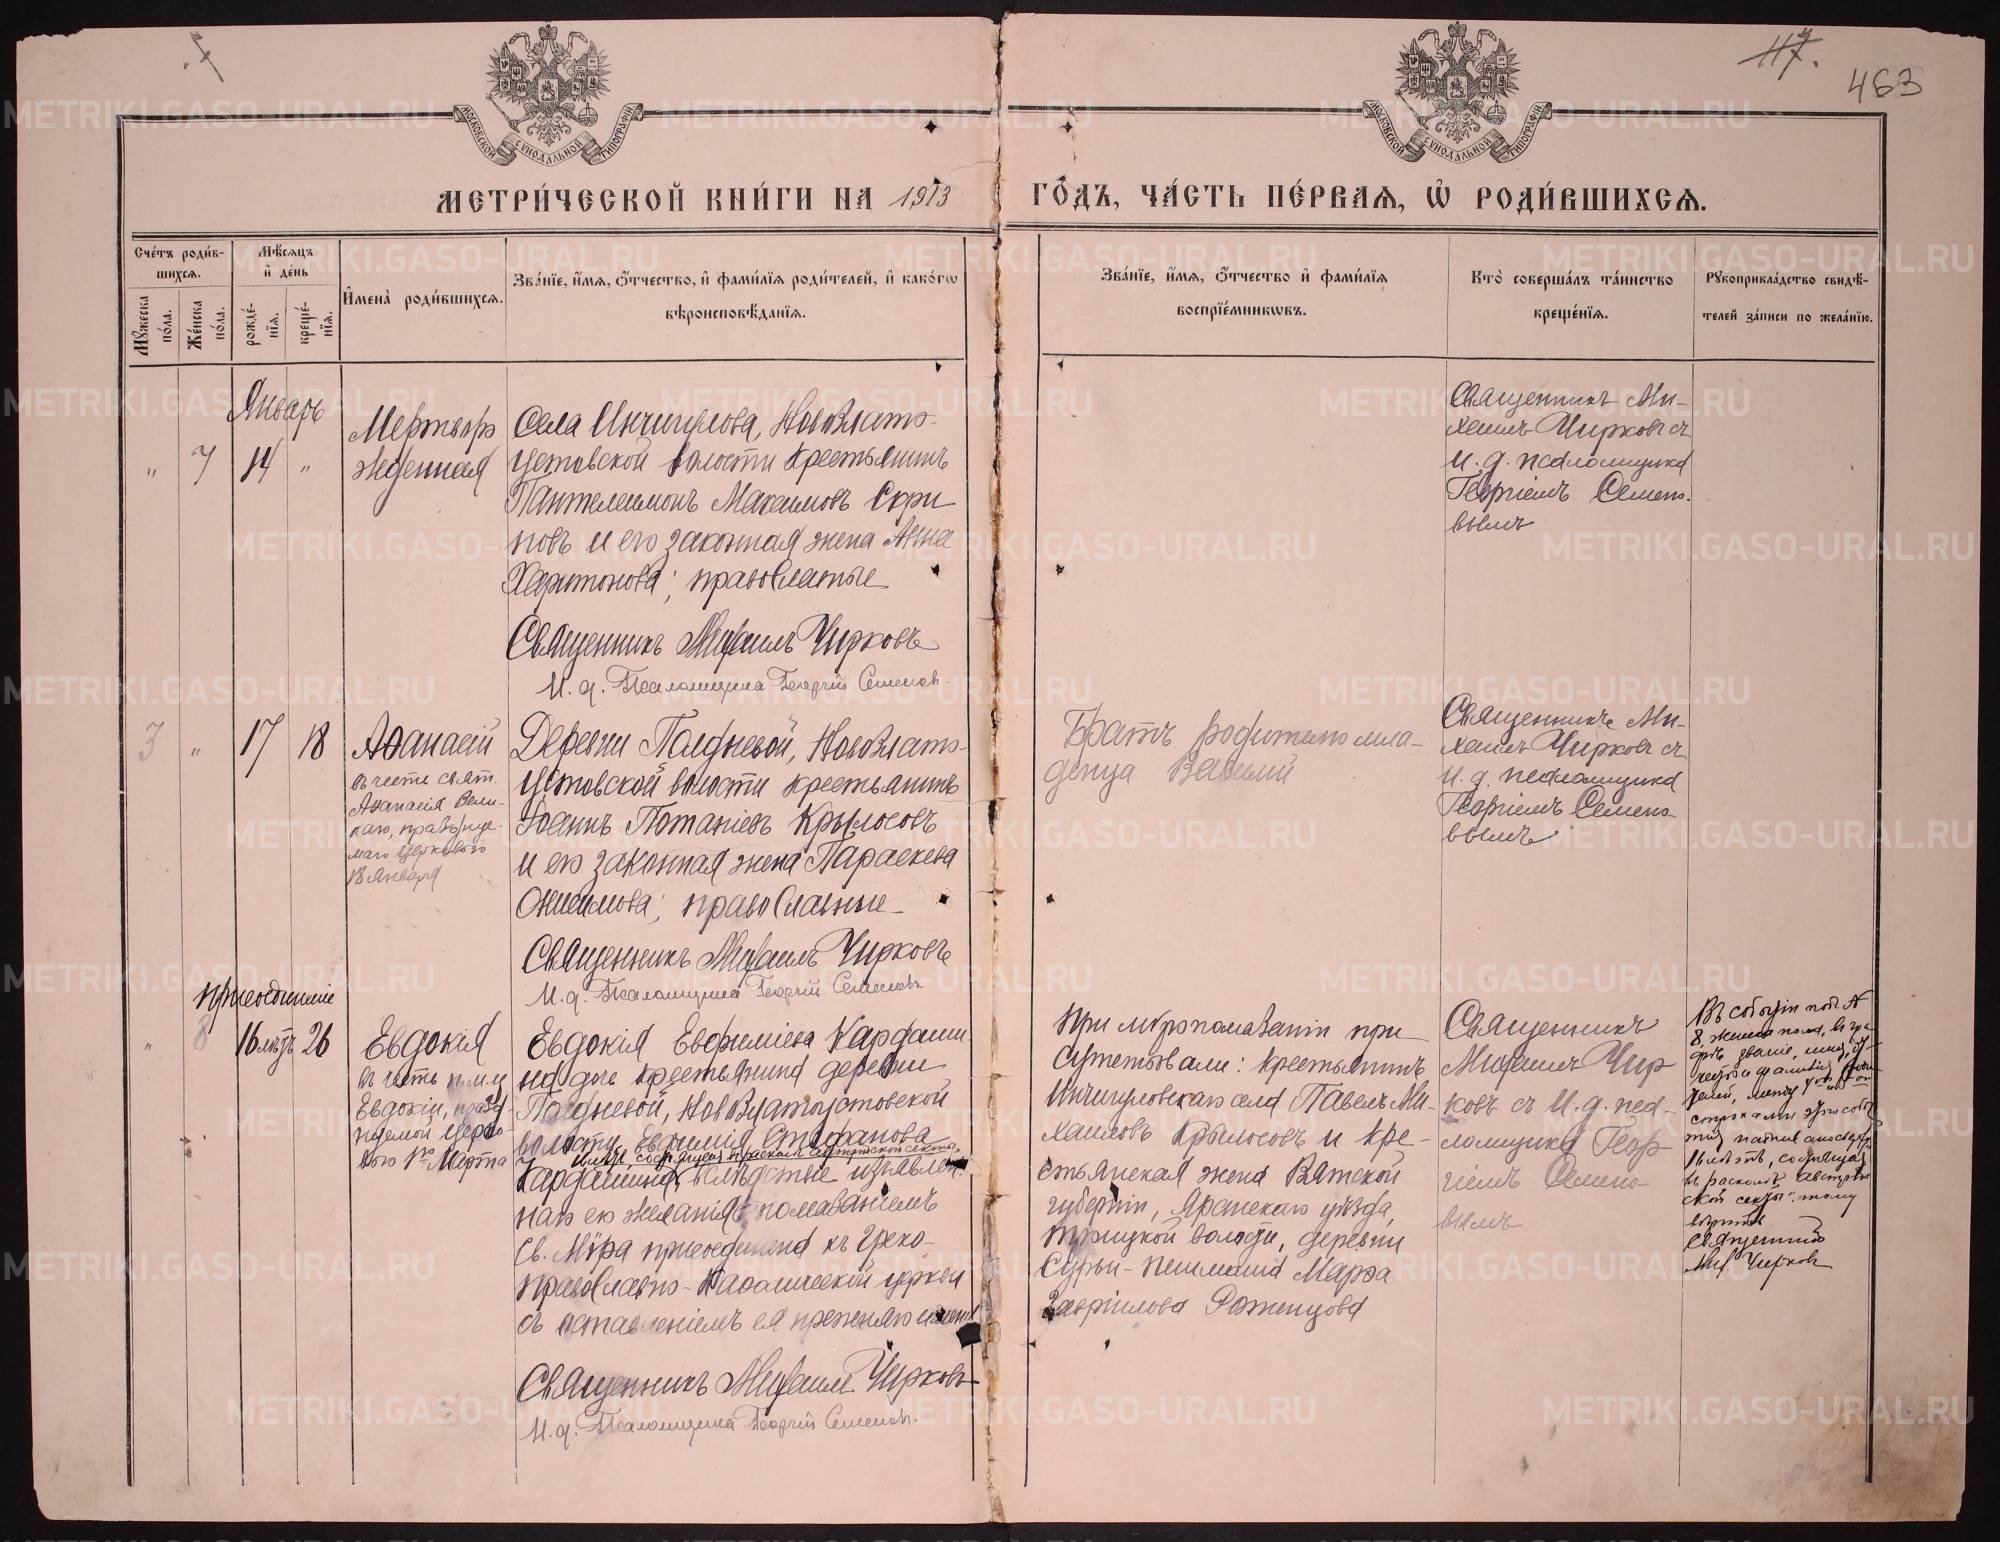 117.
463
МОСКОВСКОЙ СѴНОДАЛЬНОЙ ТИПОГРАФІИ
МОСКОВСКОЙ СѴНОДАЛЬНОЙ ТИПОГРАФІИ
МЕТРИ́ЧЕСКОЙ КНИ́ГИ НА 1913 ГО́ДЪ, ЧА́СТЬ ПЕ́РВАѦ, Ѡ҆ РОДИ́ВШИХСѦ.
Сче́тъ роди́в-
шихсѧ.
Мꙋ́жеска
по́ла.
Же́нска
по́ла.
Мѣ́сѧцъ
и҆ де́нь
рожде́-
нїѧ.
креще́-
нїѧ.
И҆мена̀ роди́вшихсѧ.
Зва́нїе, и҆́мѧ, ѻ҆́тчество, и҆ фами́лїѧ роди́телей, и҆ како́гѡ
вѣроисповѣ́данїѧ.
Зва́нїе, и҆́мѧ, ѻ҆́тчество и҆ фами́лїѧ
воспрїе́мникѡвъ.
Кто̀ соверша́лъ та́инство
креще́нїѧ.
Рꙋкоприкла́дство свидѣ́-
телей за́писи по жела́нїю.
Январь
" 7 14 "
Мертворо
жденная
Села Ичигулова, Новозлато-
устовской волости крестьянинъ
Пантелеимонъ Максимовъ Скри
повъ и его законная жена Анна
Харитонова; православные
Священникъ Михаилъ Чирковъ
И. д. Псаломщика Георгій Семеновъ.
Священникъ Ми-
хаилъ Чирковъ съ
и. д. псаломщика
Георгіемъ Семено-
вымъ
3 " 17 18
Аѳанасій
въ честь свят.
Аѳанасія Вели-
каго, праздну е-
маго церковью
18 Января
Деревни Полдневой, Новозлато-
устовской волости крестьянинъ
Іоаннъ Потапіевъ Крылосовъ
и его законная жена Параскева
Онисимова; православные
Священникъ Михаилъ Чирковъ
И. д. Псаломщика Георгій Семеновъ
Братъ родителю мла-
денца Василій
Священникъ Ми-
хаилъ Чирковъ съ
и. д. псаломщика
Георгіемъ Семено
вымъ
присоединеніе
" 8 16 лѣтъ 26
Евдокія
въ честь п. м. ц
Евдокіи, праздн
нуемой церко-
вью 1го Марта
Евдокія Евфиміева Кардаши
на дочь крестьянина деревни
Полдневой, Новозлатоустовской
волости, Евфимія Стефанова
Кардашина, вслѣдствіе изъявлен
наго ею желанія помазаніемъ
Св. Мѵра присоединена къ Греко-
православно-Каѳолической церкви
съ оставленіемъ ея прежняго имени
Священникъ Михаилъ Чирковъ
И. д. Псаломщика Георгій Семеновъ.
При мѵропомазаніи при
сутствовали: крестьянинъ
Ичигуловскаго села Павелъ Ми-
хаиловъ Крылосовъ и кре-
стьянская жена Вятской
губерніи, Яранскаго уѣзда,
волости, деревни
Марѳа
Гавріилова Роженцова
Священникъ
Михаилъ Чир
ковъ съ И. д. пса-
ломщика Геор
гіемъ Семено
вымъ
Въ событіи подъ №
8, женска пола, въ гра-
фѣ званіе, имя, от-
чество и фамилія роди-
телей, между
строками
16 лѣтъ, состоящая
въ расколѣ австрій-
ской секты". тому
вѣрить
Священникъ
Мих. Чирковъ
METRIKI.GASO-URAL.RU